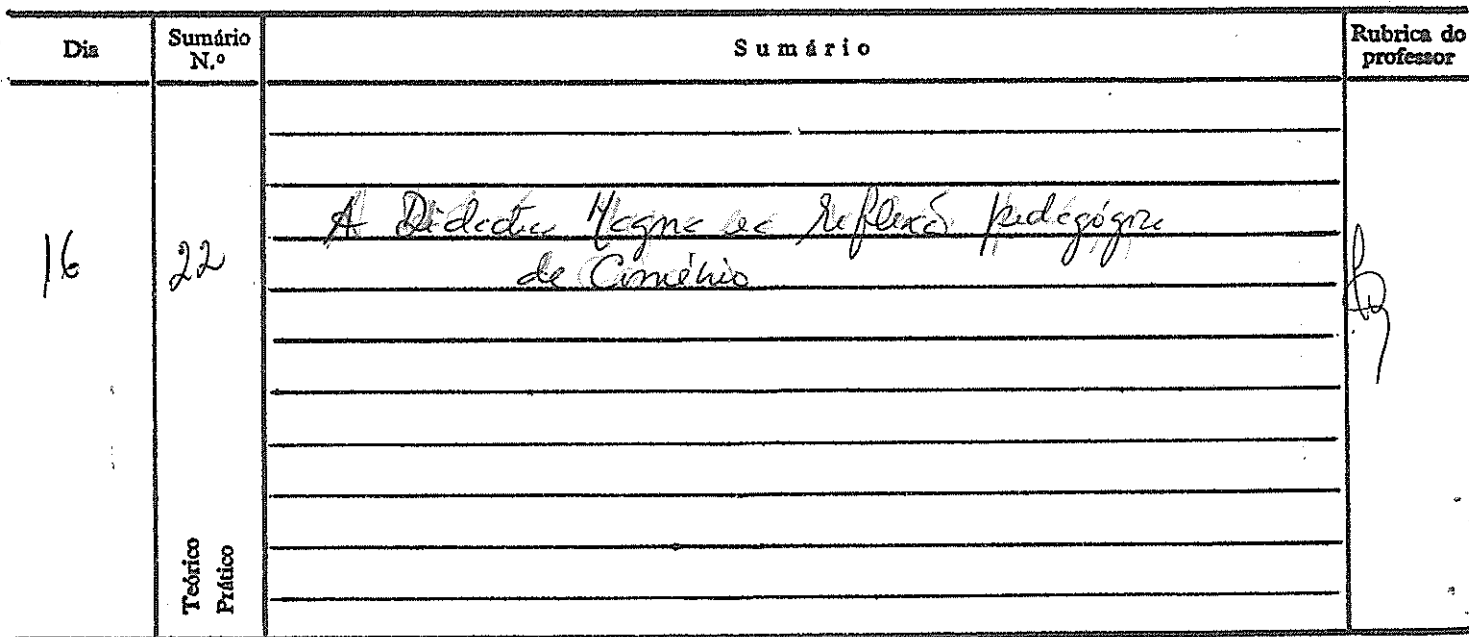 Dia
Sumário
N.º
Sumário
Rubrica do
professor
16
22
A Didactica Magna na reflexão pedagógica
de Coménio
Teórico
Prático